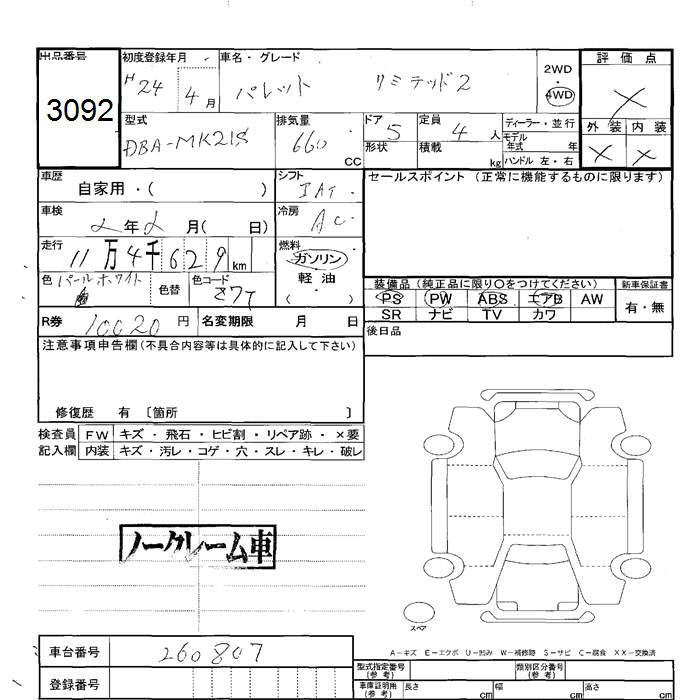 出品番号
3092
初度登録年月
H24 4月
車名・グレード
パレット リミテッド2
2WD
4WD
評価点
型式
DBA-MK21S
排気量
660 CC
ドア 5
形状
定員 4人
積載 kg
ディーラー・並行
モデル年式 年
ハンドル 左・右
外装 内装
車歴
自家用・( )
シフト
IAT
セールスポイント (正常に機能するものに限ります)
車検
2年2月( 日)
冷房
AC
走行
11万4千629km
燃料
ガソリン
軽油
( )
色 パールホワイト
色替
色コード
Z7T
装備品 (純正品に限り○をつけてください)
新車保証書
PS PW ABS エアB AW
SR ナビ TV カワ
有・無
R券 10020円
名変期限 月 日
後日品
注意事項申告欄(不具合内容等は具体的に記入して下さい)
修復歴 有 〔箇所 〕
検査員記入欄
FW キズ・飛石・ヒビ割・リペア跡・×要
内装 キズ・汚レ・コゲ・穴・スレ・キレ・破レ
ノークレーム車
スペア
A-キズ E-エクボ U-凹み W-補修跡 S-サビ C-腐食 XX-交換済
車台番号 260807
登録番号
型式指定番号(参考)
類別区分番号(参考)
車庫証明用(参考)
長さ cm 幅 cm 高さ cm